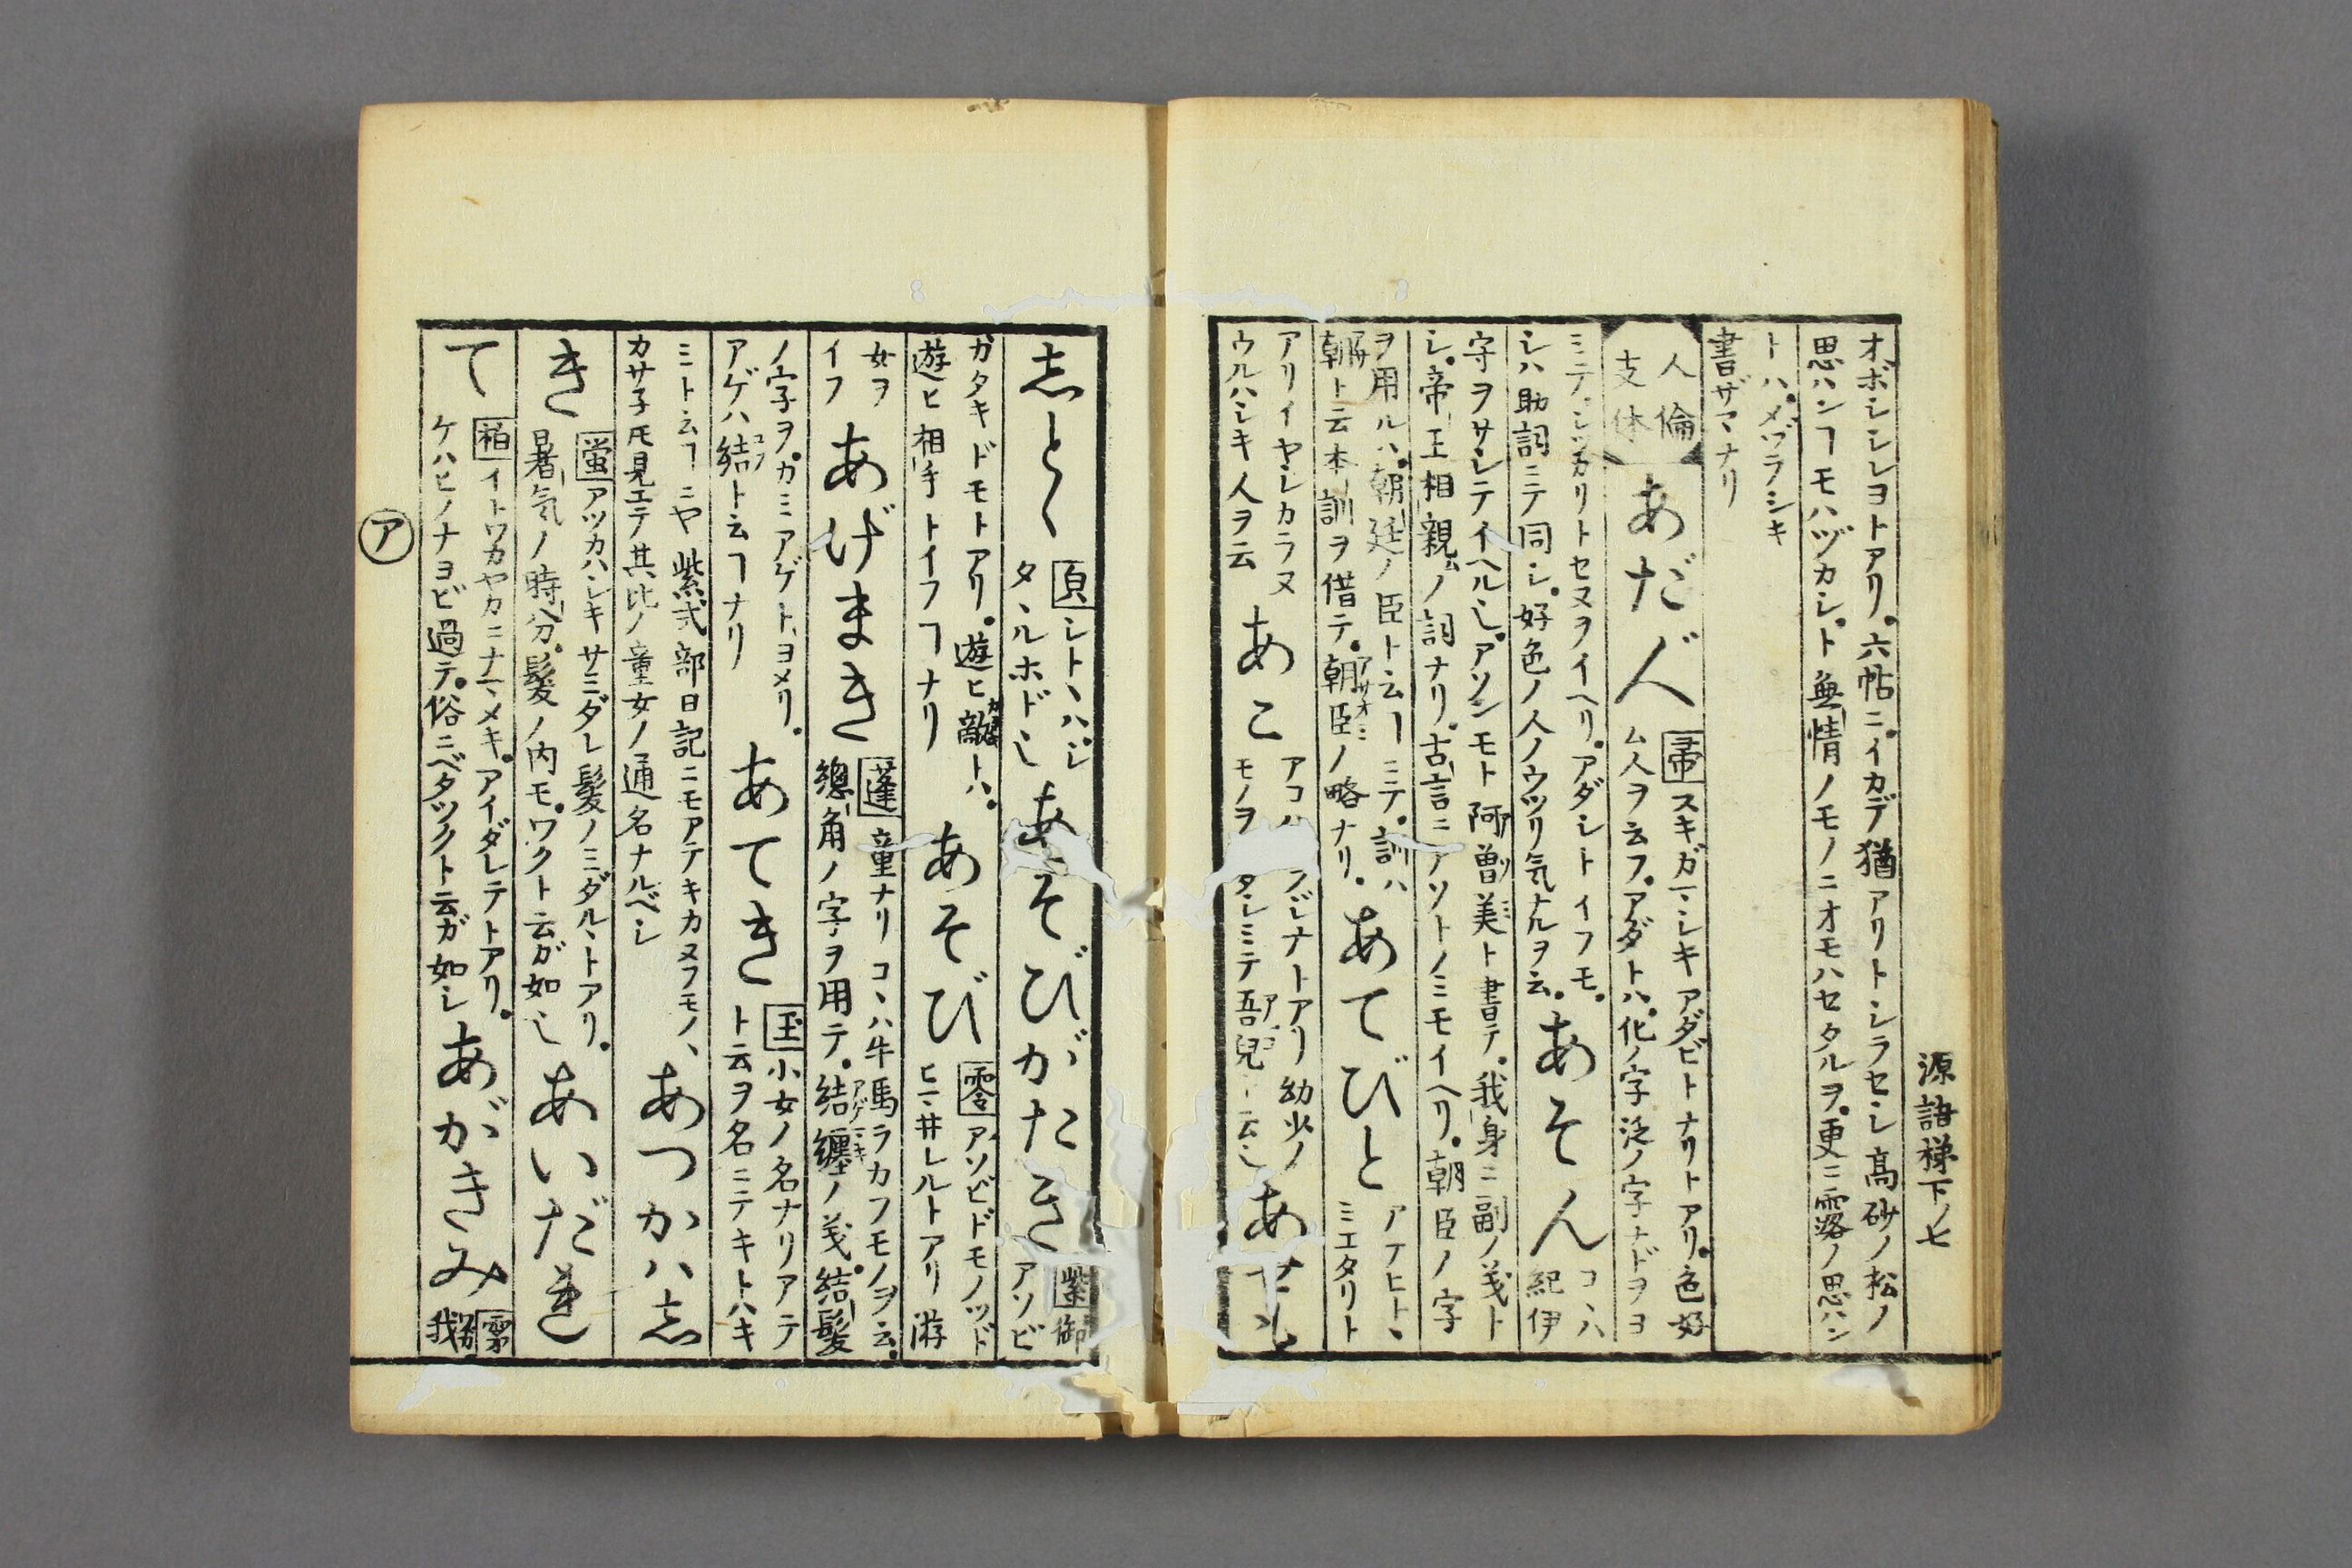 源語梯下ノ七
オボシシレヨトアリ。六帖ニ。イカデ猶アリトシラセシ高砂ノ松ノ
思ハンヿモハヅカシ。ト無情ノモノニオモハセタルヲ。更ニ露ノ思ハン
トハ。メヅラシキ
書ザマナリ
人倫
支体
あだ人
帚 スキガマシキアダビトナリトアリ。色好
ム人ヲ云フ。アダトハ。化ノ字泛ノ字ナドヲヨ
ミテ。シツカリトセヌヲイヘリ。アダシトイフモ。
シハ助詞ニテ同シ。好色ノ人ノウツリ気ナルヲ云。
あそん
コヽハ
紀伊
守ヲサシテイヘル也。アソンモト阿曽美ト書テ。我身ニ副ノ義ト
シ。帝王相親ムノ詞ナリ。古言ニアソトノミモイヘリ。朝臣ノ字
ヲ用ルハ。朝廷ノ臣ト云ヿニテ。訓ハ
朝ト云本訓ヲ借テ。朝臣ノ略ナリ。
あてびと
アテヒトヽ
ミエタリト
アリイヤシカラヌ
ウルハシキ人ヲ云
あこ
アコハ ラジナトアリ幼少ノ
モノヲ タシミテ吾兒ト云也
あ
しとゝ
頁 シトヽハシ
タヽルホド也
あそびがたき
紫 御
アソビ
ガタキドモトアリ。遊ヒ敵トハ。
遊ヒ相手トイフヿナリ
あそび
零 アソビドモノツド
ヒマ井レルトアリ游
女ヲ
イフ
あげまき
蓬 童ナリコヽハ牛馬ラカフモノヲ云。
總角ノ字ヲ用テ。結纏ノ義。結髪
ノ字ヲ。カミアゲト、ヨメリ。
アゲハ結ト云ヿナリ
あてき
玉 小女ノ名ナリアテ
ト云ヲ名ニテキトハキ
ミト云ヿニヤ紫式部日記ニモアテキカヌフモノヽ
カサ子𪜈見エテ其比ノ童女ノ通名ナルベシ
あつかハし
き
蛍 アツカハシキサミダレ髪ノミダルヽトアリ。
暑気ノ時分。髪ノ内モ。ワクト云ガ如シ
あいだれ
て
柏 イトワカヤカニナマメキ。アイダレテトアリ。
ケハヒノナヨビ過テ。俗ニベタツクト云ガ如シ
あがきみ
雲
我
ア